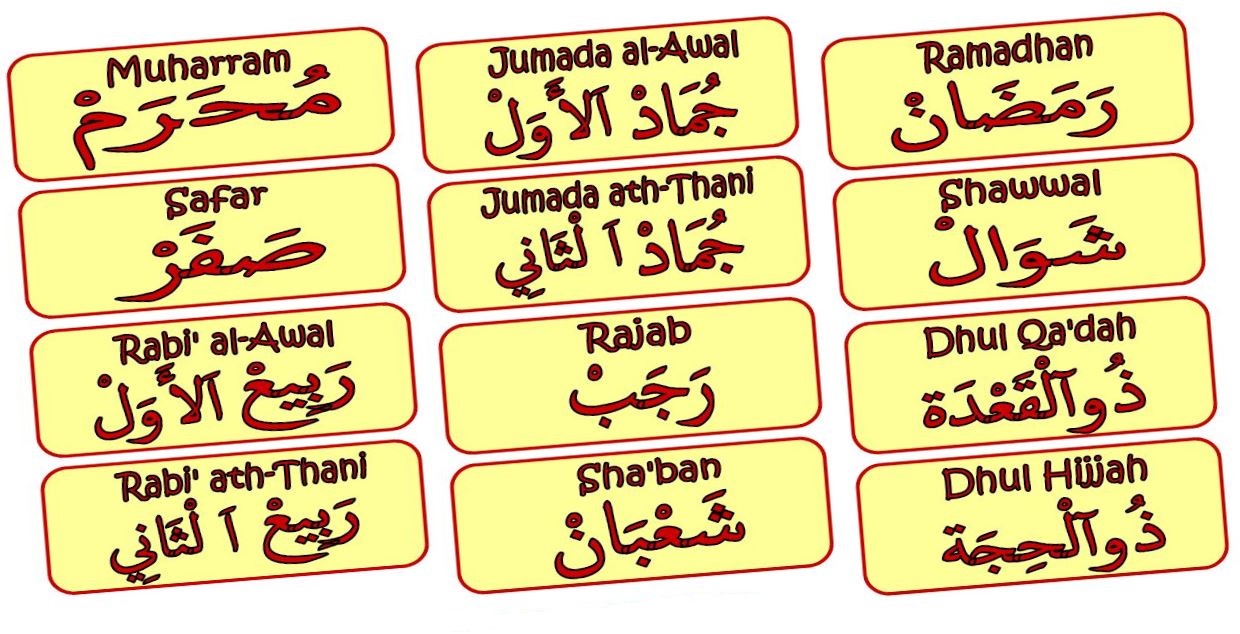 Muharram
مُحَرَمْ
Safar
صَفَرْ
Rabi' al-Awal
رَبِيعْ اَلأَوَلْ
Rabi' ath-Thani
رَبِيعْ اَ لْثَانِي
Jumada al-Awal
جُمَادْ اَلأَوَلْ
Jumada ath-Thani
جُمَادْ اَ لْثَانِي
Rajab
رَجَبْ
Sha'ban
شَعْبَانْ
Ramadhan
رَمَضَانْ
Shawwal
شَوَالْ
Dhul Qa'dah
ذُوآلْقَعْدَة
Dhul Hijjah
ذُوآلْحِجَة